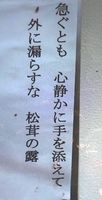 急ぐとも　心静かに手を添えて
外に漏らすな　松茸の露